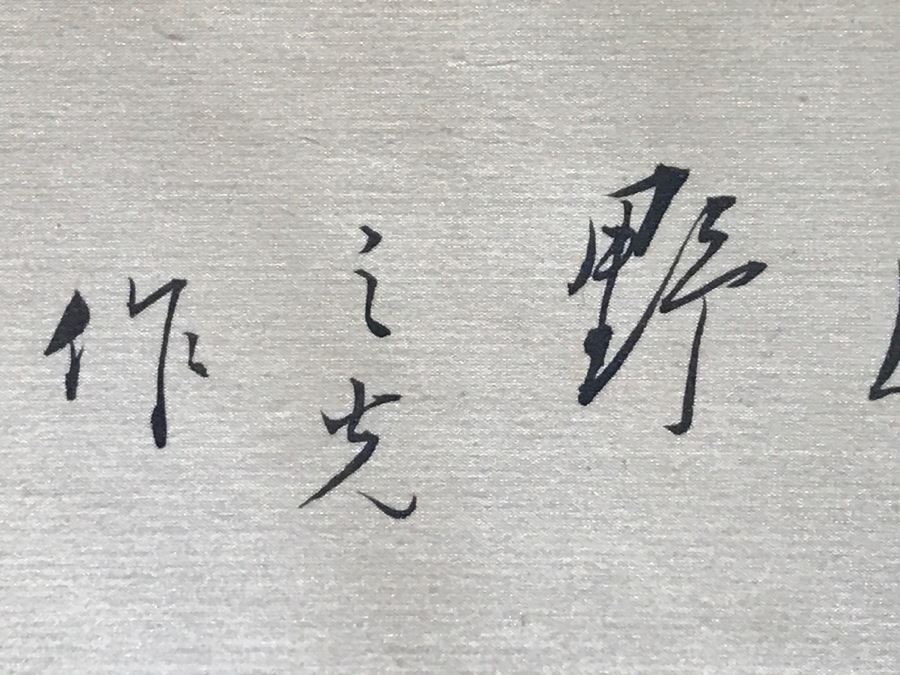 野
之光
作